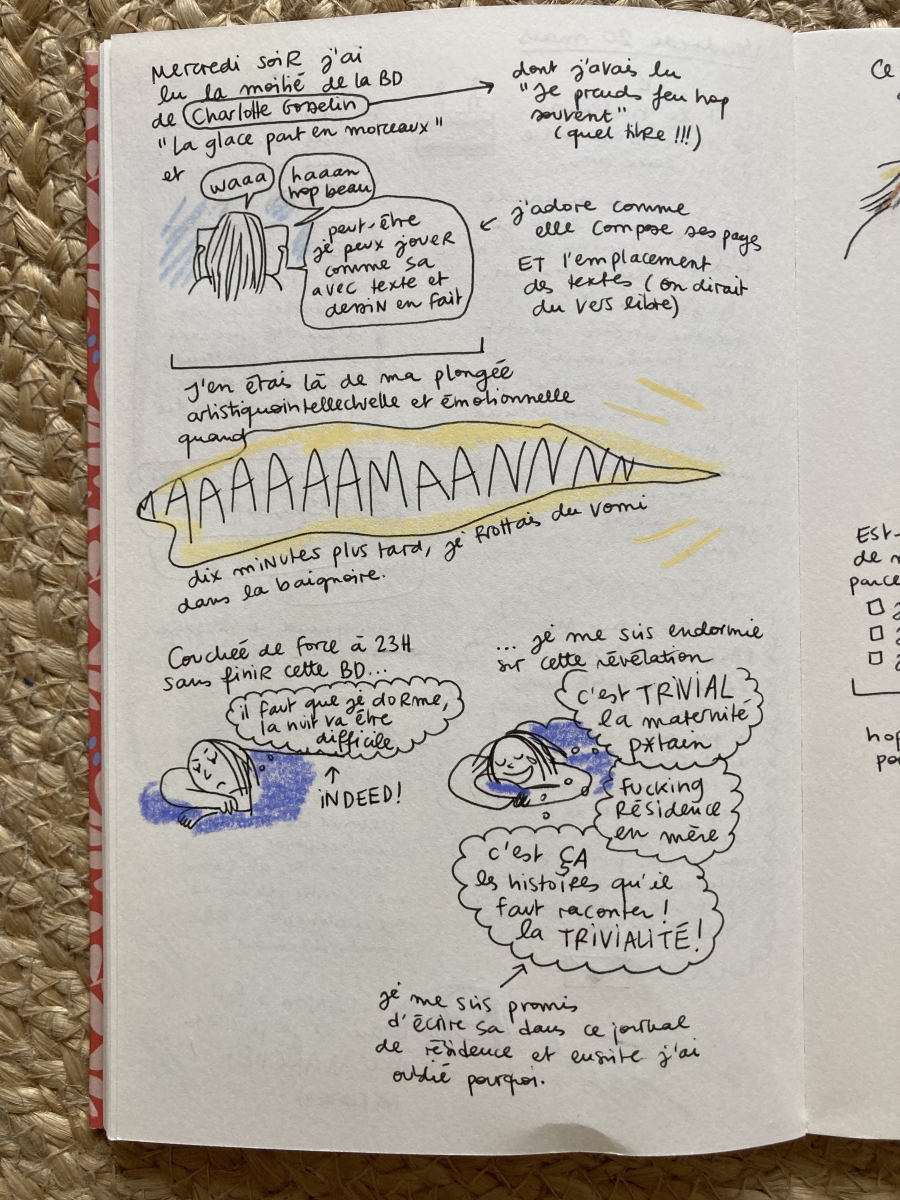 Mercredi soir j'ai
lu la moitié de la BD
de Charlotte Gosselin
"La glace part en morceaux"
et
dont j'avais lu
"Je prends feu trop
souvent"
(quel titre !!!)
waaa
haaan
trop beau
peut-être
je peux jouer
comme sa
avec texte et
dessin en fait
j'adore comme
elle compose ses pages
ET l'emplacement
des textes (on dirait
du vers libre)
J'en étais là de ma plongée
artistiquointellectuelle et émotionnelle
quand
MAAAAAAMAANNNNN
dix minutes plus tard, je frottais du vomi
dans la baignoire.
Couchée de force à 23H
sans finir cette BD...
il faut que je dorme,
la nuit va être
difficile
INDEED!
... je me suis endormie
sur cette révélation
c'est TRIVIAL
la maternité
p*tain
fucking
Résidence
en mère
c'est ÇA
les histoires qu'il
faut raconter !
la TRIVIALITÉ !
je me suis promis
d'écrire sa dans ce journal
de résidence et ensuite j'ai
oublié pourquoi.
Ce
Est-
de m
parce